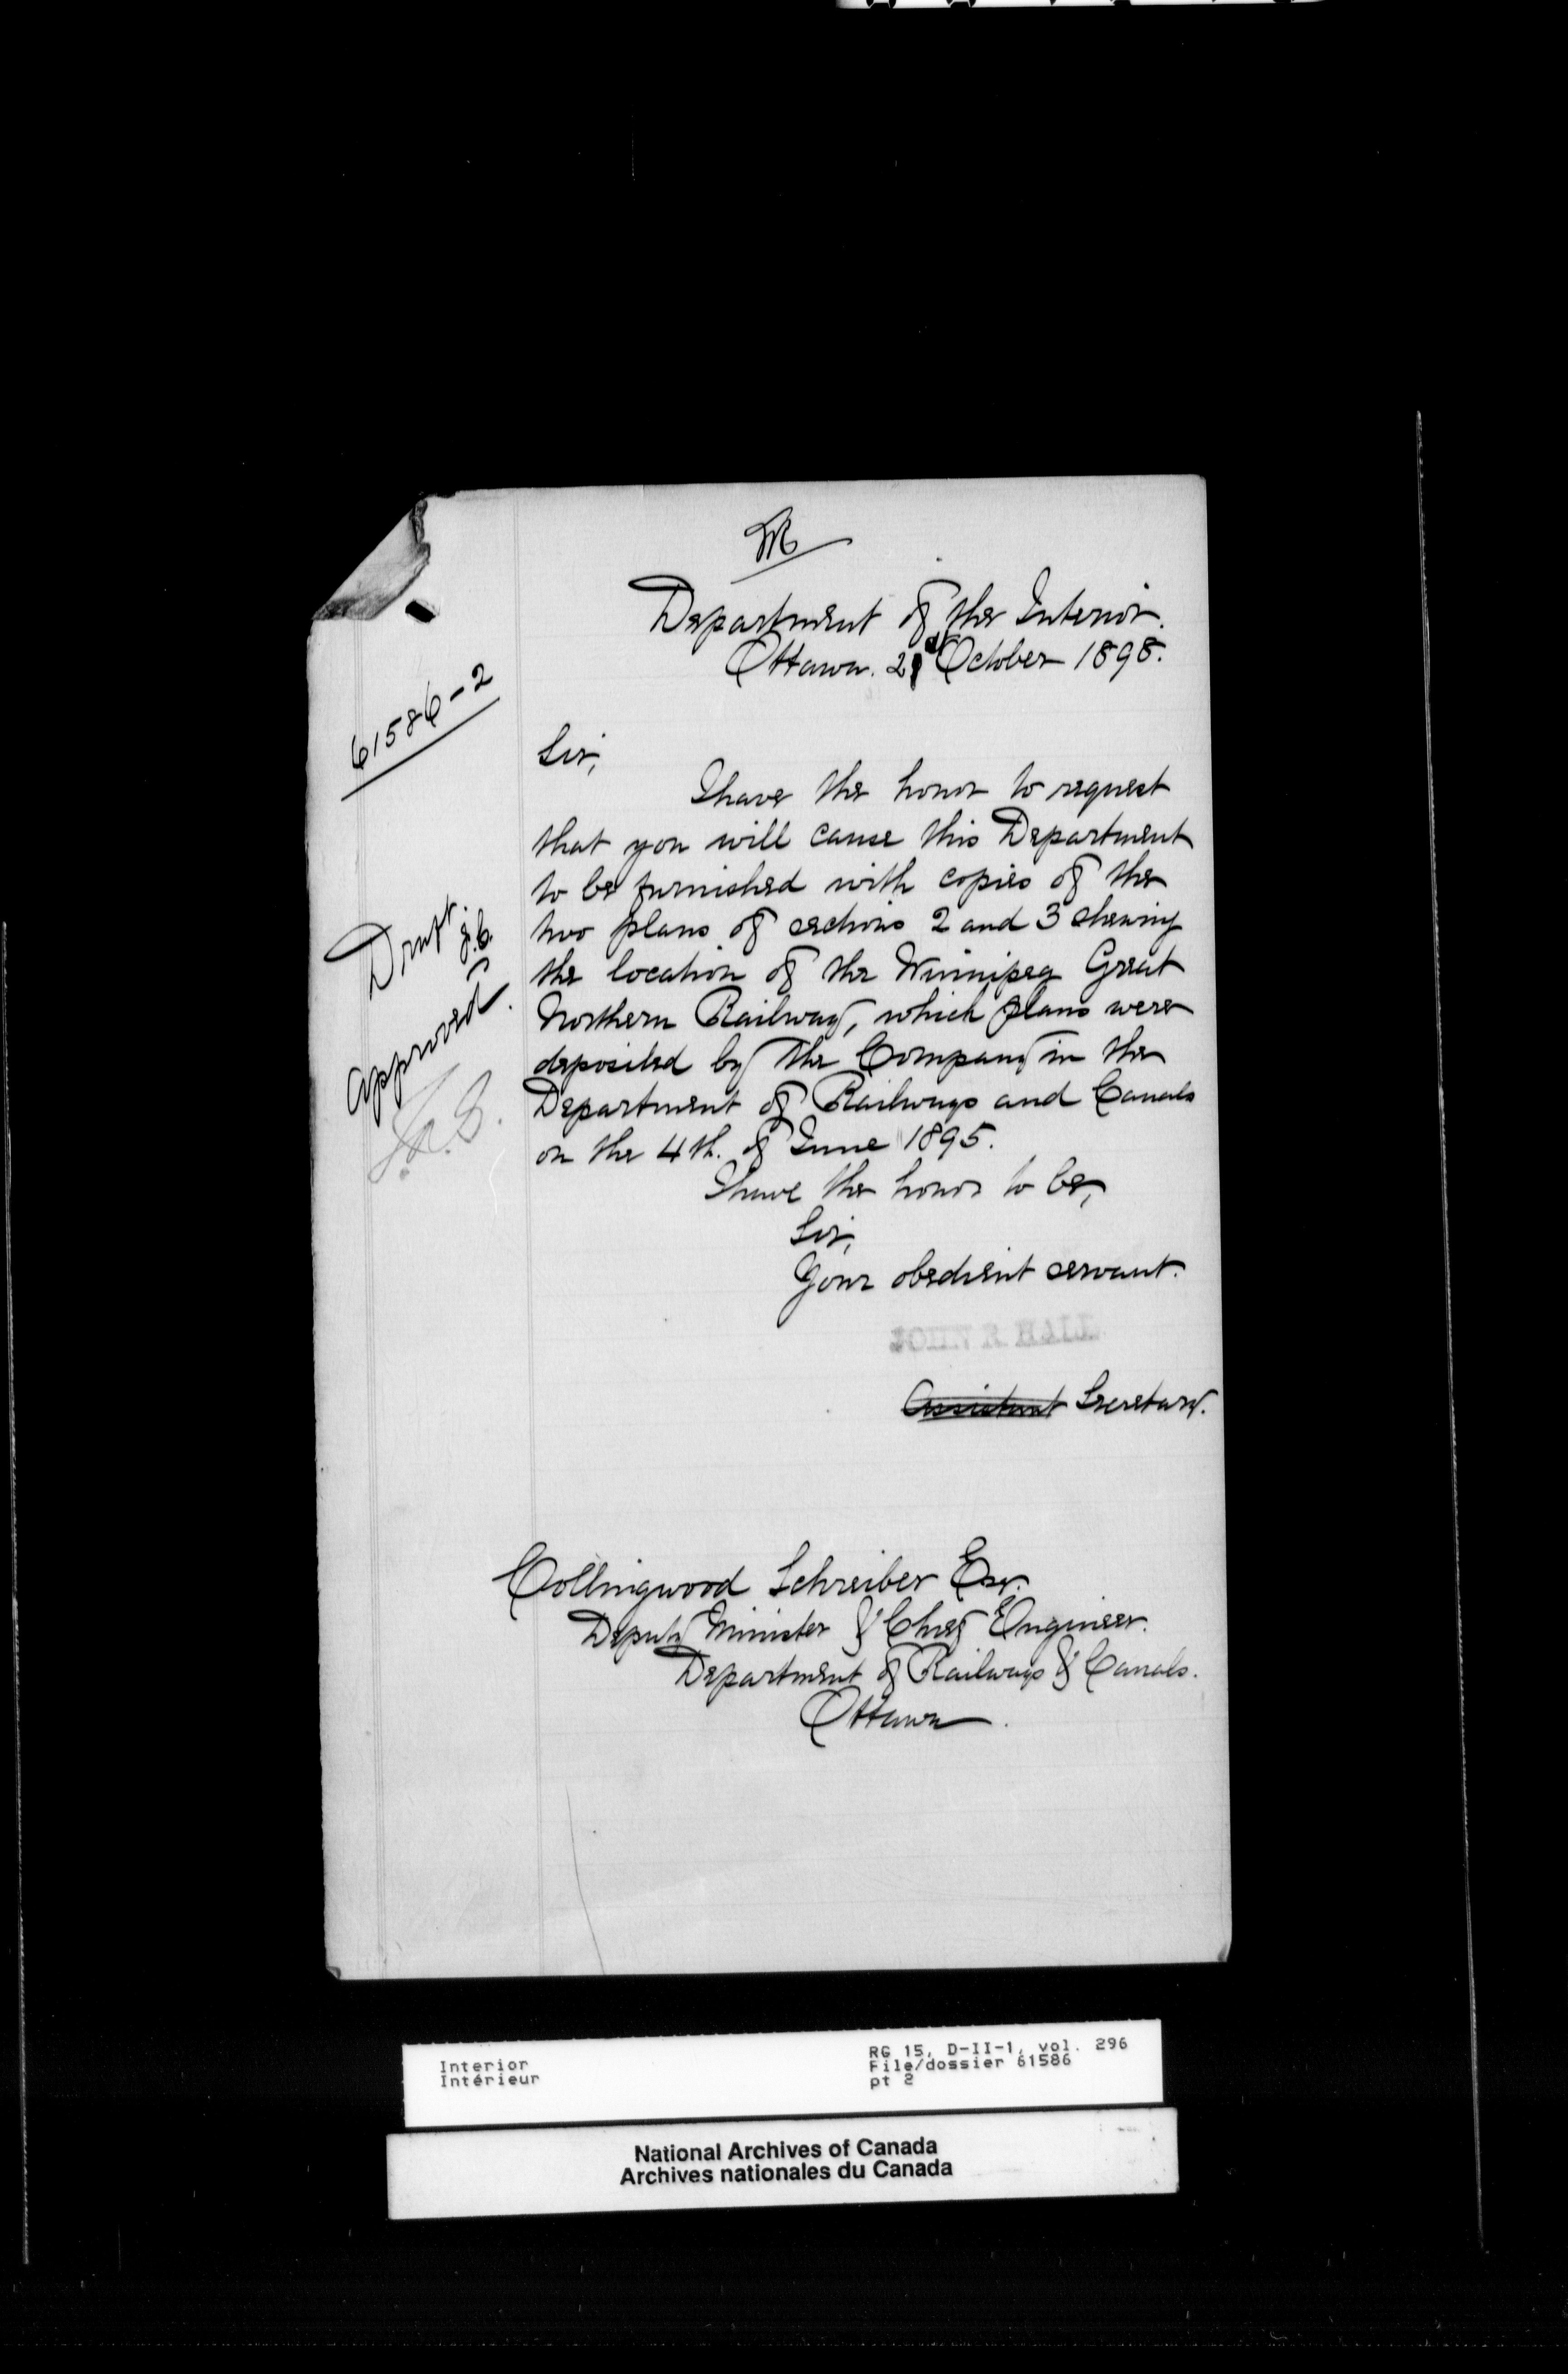 M
Department of the Interior.
Ottawa. 21st October 1898.
61586-2
Sir,
I have the honor to request
that you will cause this Department
to be furnished with copies of the
two plans of sections 2 and 3 shewing
the location of the Winnipeg Great
Northern Railway, which plans were
deposited by the Company in the
Department of Railways and Canals
on the 4th. of June 1895.
Draft.
Approved.
I have the honor to be,
Sir,
Your obedient servant.
JOHN R HALL
Assistant Secretary.
Collingwood Schreiber Esq.
Deputy Minister & Chief Engineer.
Department of Railways & Canals.
Ottawa.
Interior
Intérieur
RG 15, D-II-1, vol. 296
File/dossier 61586
pt 2
National Archives of Canada
Archives nationales du Canada